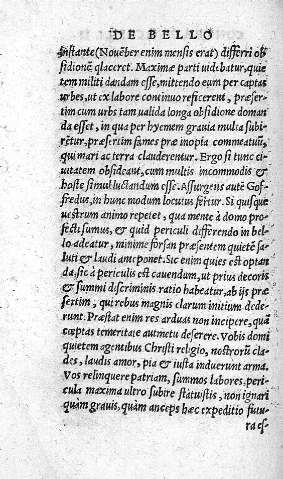 DE BELLO
instante (Nouẽber enim mensis erat) differri ob
sidionẽ placeret. Maximæ parti uidebatur, quie
tem militi dandam esse, mittendo eum per captas
urbes, ut ex labore continuo reficerent, præser-
tim cum urbs tam ualida longa obsidione doman
da esset, in qua per hyemem grauia multa subi-
rẽtur, præsertim fames præ inopia commeatuũ,
qui mari ac terra clauderentur. Ergo si tunc ci-
uitatem obsideant, cum multis incommodis &
hoste simul luctandum esse. Assurgens autẽ Gof-
fredus, in hunc modum locutus fertur. Si quisque
uestrum animo repetet, qua mente à domo pro-
fecti sumus, & quid periculi differendo in bel-
lo adeatur, minime forsan præsentem quietẽ sa-
luti & laudi antepõnet. Sic enim quies est optan
da, sic à periculis est cauendum, ut prius decoris
& summi discriminis ratio habeatur, ab ijs præ
sertim, qui rebus magnis clarum initium dede-
runt. Præstat enim res arduas non incipere, quã
cœptas temeritate aut metu deserere. Vobis domi
quietem agentibus Christi religio, nostrorũ cla-
des, laudis amor, pia & iusta induerunt arma.
Vos relinquere patriam, summos labores, peri-
cula maxima ultro subire statuistis, non ignari
quàm grauis, quàm anceps hæc expeditio futu-
ra es-